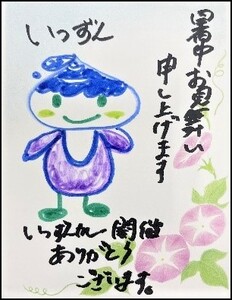 暑中お見舞い
申し上げます
いっずん
開催
ありがとう
ございます。